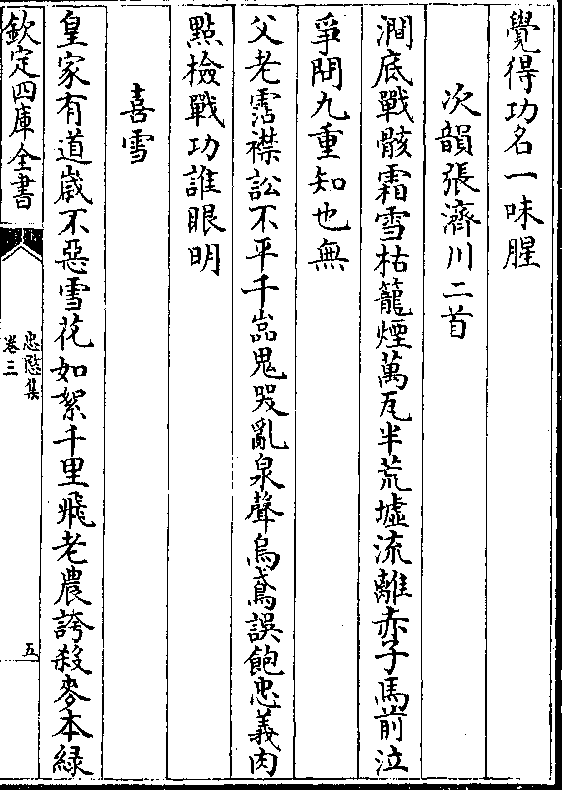 覺得功名一味腥
次韻張濟川二首
澗底戰骸霜雪枯籠煙萬瓦半荒墟流離赤子馬前泣
爭問九重知也無
父老霑襟訟不平千嵓鬼哭亂泉聲烏鳶誤飽忠義肉
點檢戰功誰眼明
喜雪
皇家有道嵗不惡雪花如絮千里飛老農誇殺麥本緑
欽定四庫全書
忠愍集
卷三
五